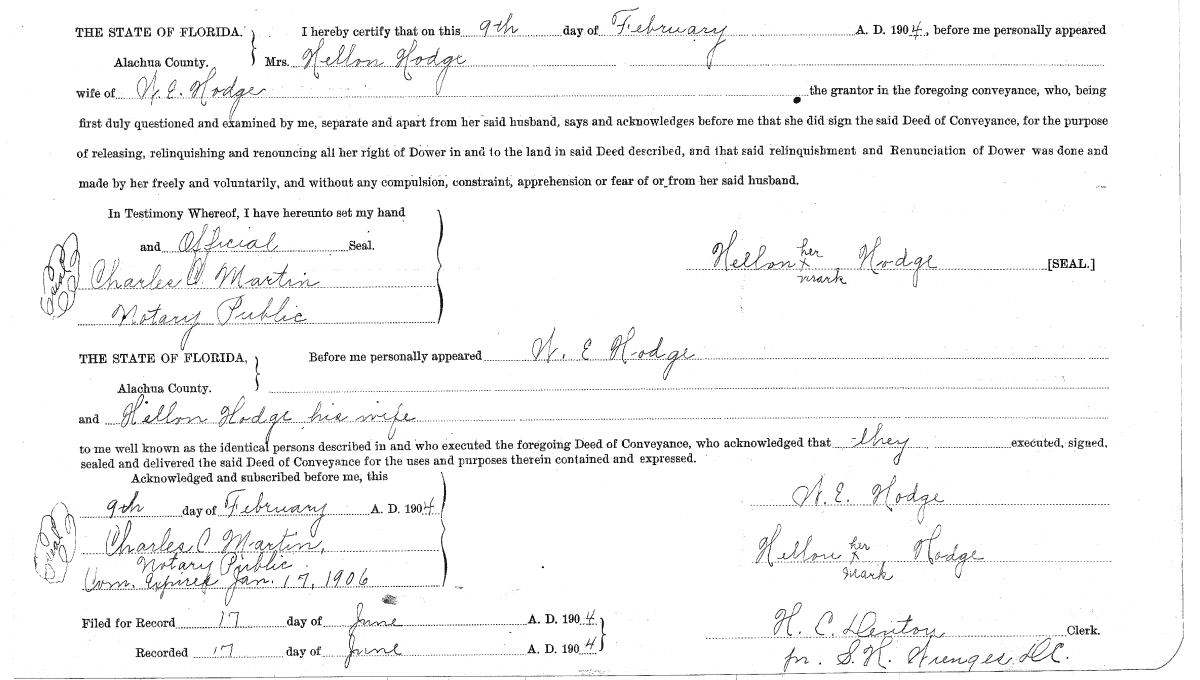 THE STATE OF FLORIDA. } I hereby certify that on this 9th day of February A. D. 1904, before me personally appeared
Alachua County. Mrs. Hellon Hodge
wife of W. E. Hodge the grantor in the foregoing conveyance, who, being
first duly questioned and examined by me, separate and apart from her said husband, says and acknowledges before me that she did sign the said Deed of Conveyance, for the purpose
of releasing, relinquishing and renouncing all her right of Dower in and to the land in said Deed described, and that said relinquishment and Renunciation of Dower was done and
made by her freely and voluntarily, and without any compulsion, constraint, apprehension or fear of or from her said husband.
In Testimony Whereof, I have hereunto set my hand
and Official Seal.
Seal
Charles C. Martin
Notary Public
Hellon her x mark Hodge [SEAL.]
THE STATE OF FLORIDA, } Before me personally appeared W. E Hodge
Alachua County.
and Hellon Hodge his wife
to me well known as the identical persons described in and who executed the foregoing Deed of Conveyance, who acknowledged that they executed, signed,
sealed and delivered the said Deed of Conveyance for the uses and purposes therein contained and expressed.
Acknowledged and subscribed before me, this
9th day of February A. D. 1904
Seal
Charles C Martin,
Notary Public
Com. Expires Jan. 17, 1906
W. E. Hodge
Hellon her x mark Hodge
Filed for Record 17 day of June A. D. 1904
Recorded 17 day of June A. D. 1904
H. C. Denton Clerk.
pr. S. H. D.C.